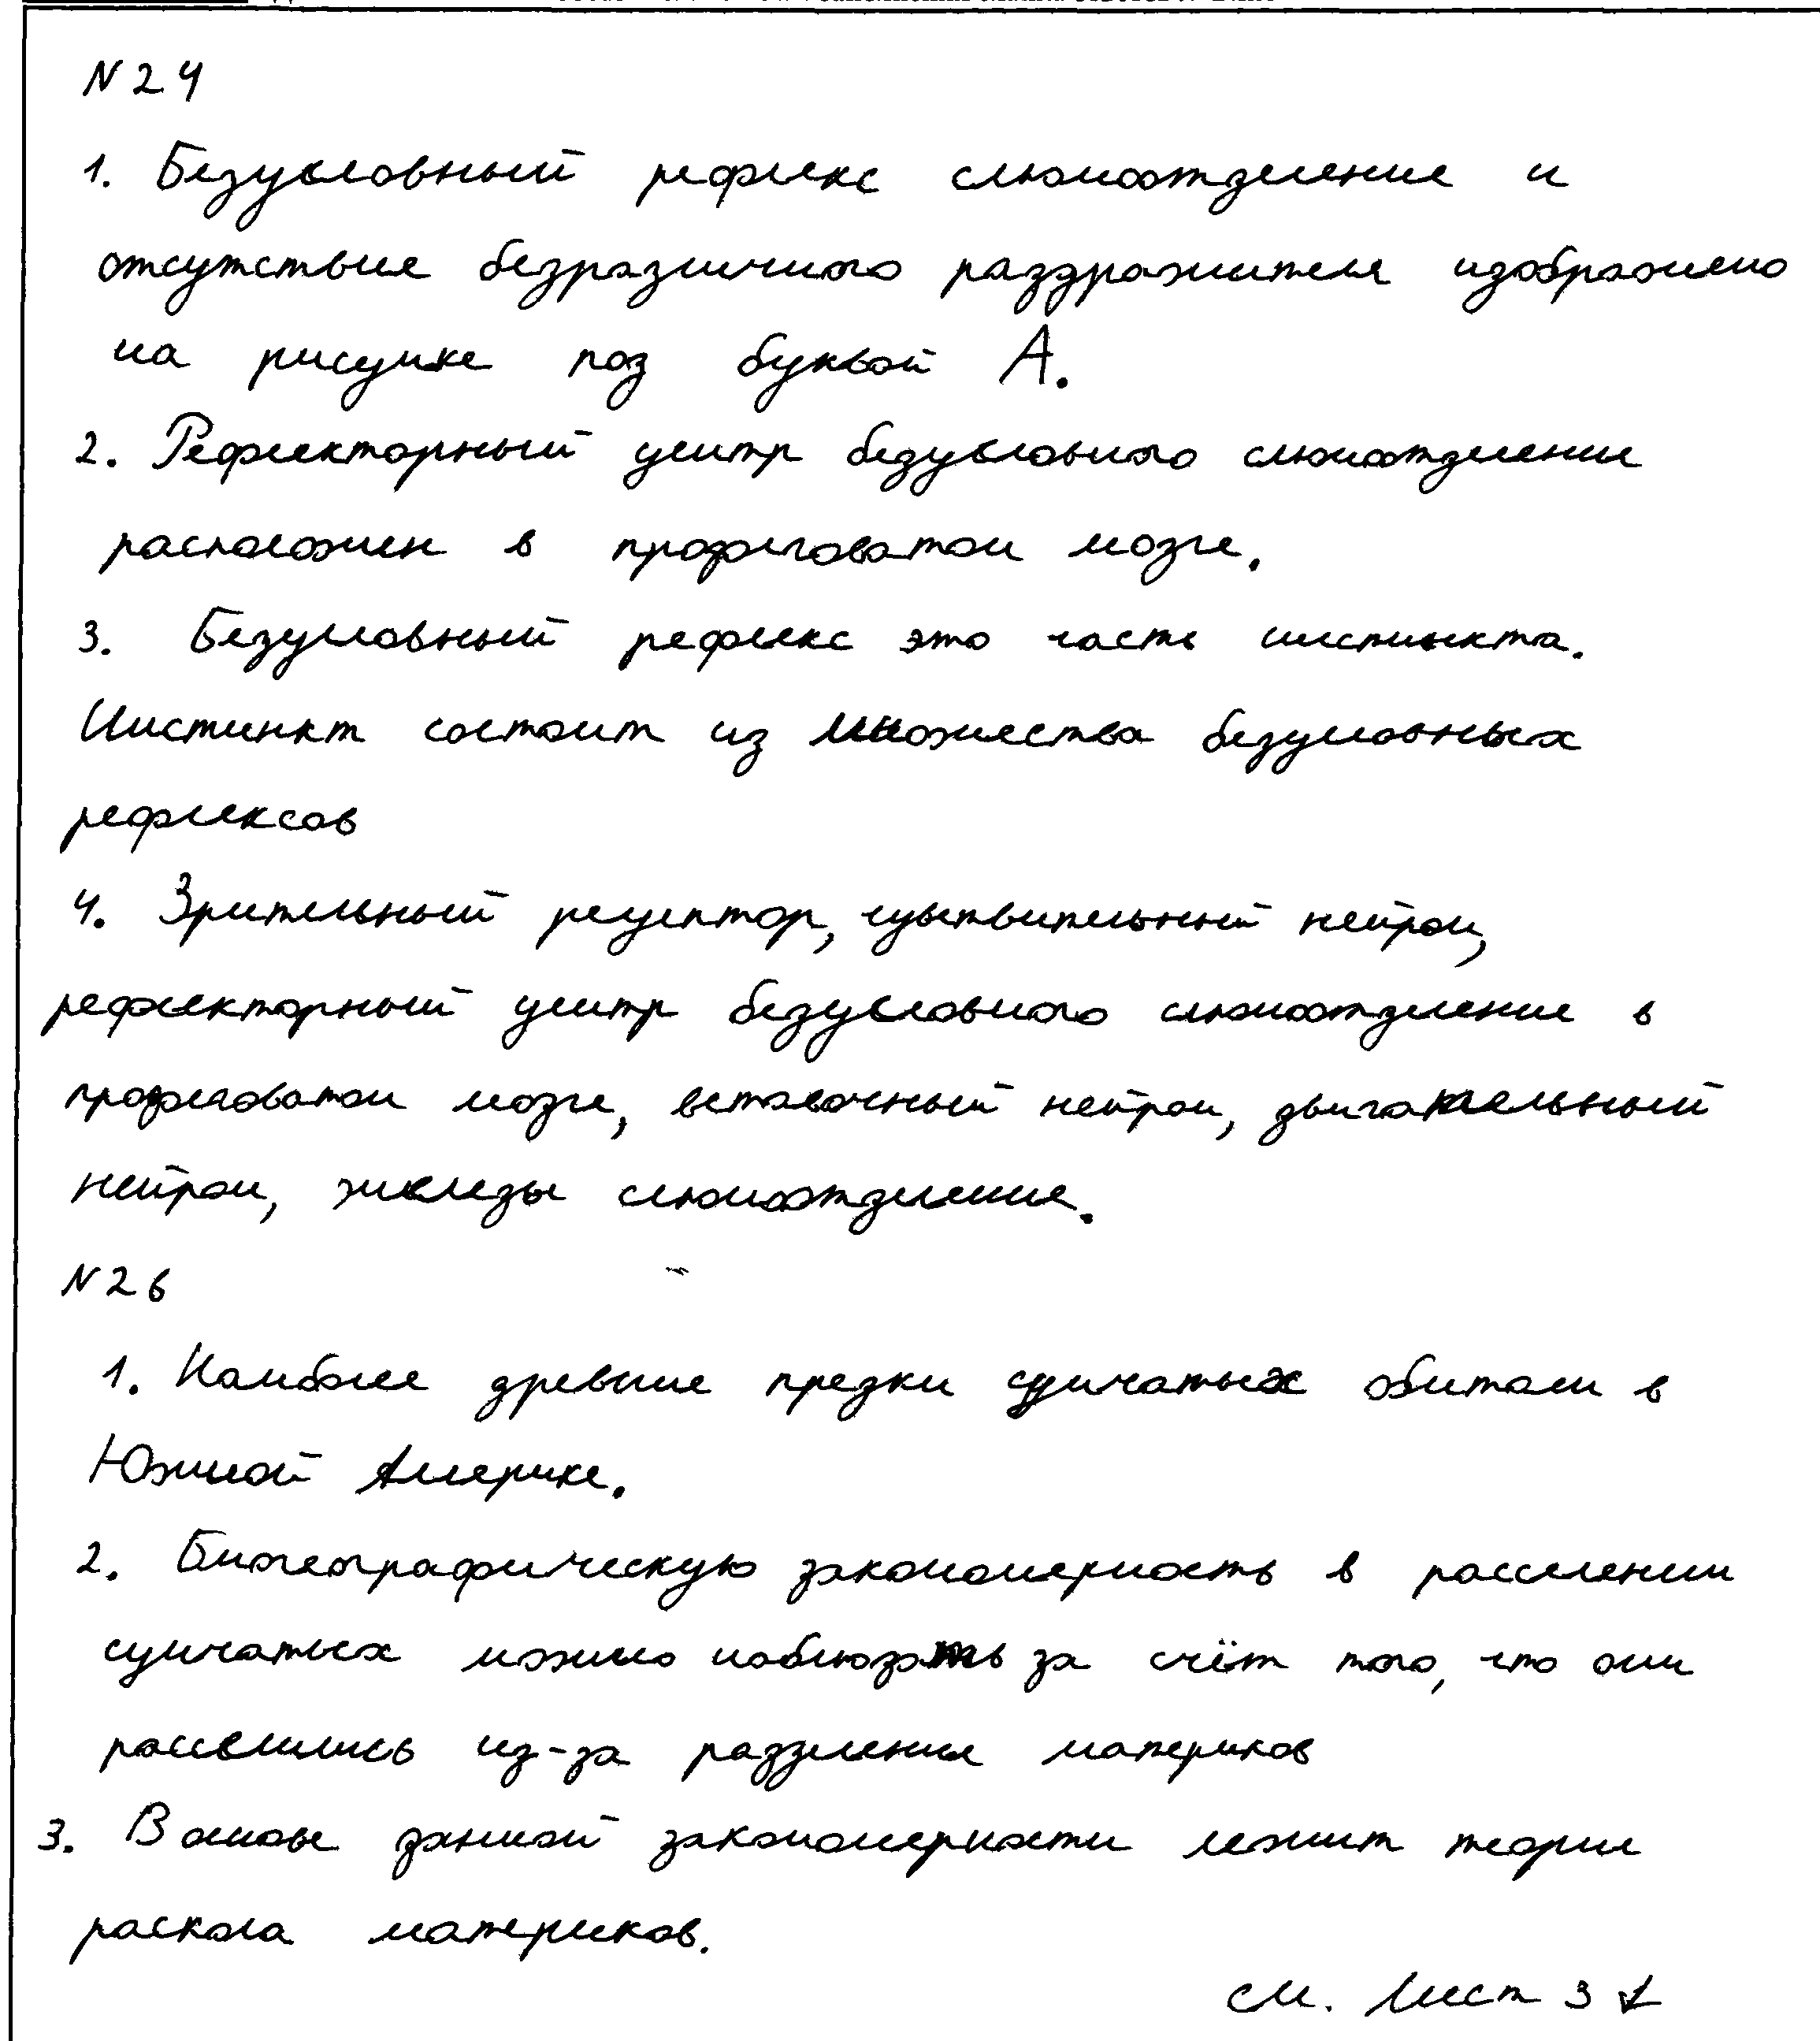 N24
1. Безусловный рефлекс слюноотделение и
отсутствие безразличного раздражителя изображено
на рисунке под буквой А.
2. Рефлекторный центр безусловного слюноотделение
расположен в продолговатом мозге.
3. Безусловный рефлекс это часть инстинкта.
Инстинкт состоит из множества безусловных
рефлексов
4. Зрительный рецептор, чувствительный нейрон,
рефлекторный центр безусловного слюноотделение в
мозге, вставочный нейрон, двигательный
нейрон, железы слюноотделения.
N26
1. Наиболее древние предки сумчатых обитали в
Южной Америке.
2. Биогеографическую закономерность в расселении
сумчатых можно наблюдать за счёт того, что они
из-за разделения материков
3. В основе данной закономерности лежит теория
раскола материков.
см. Лист 3